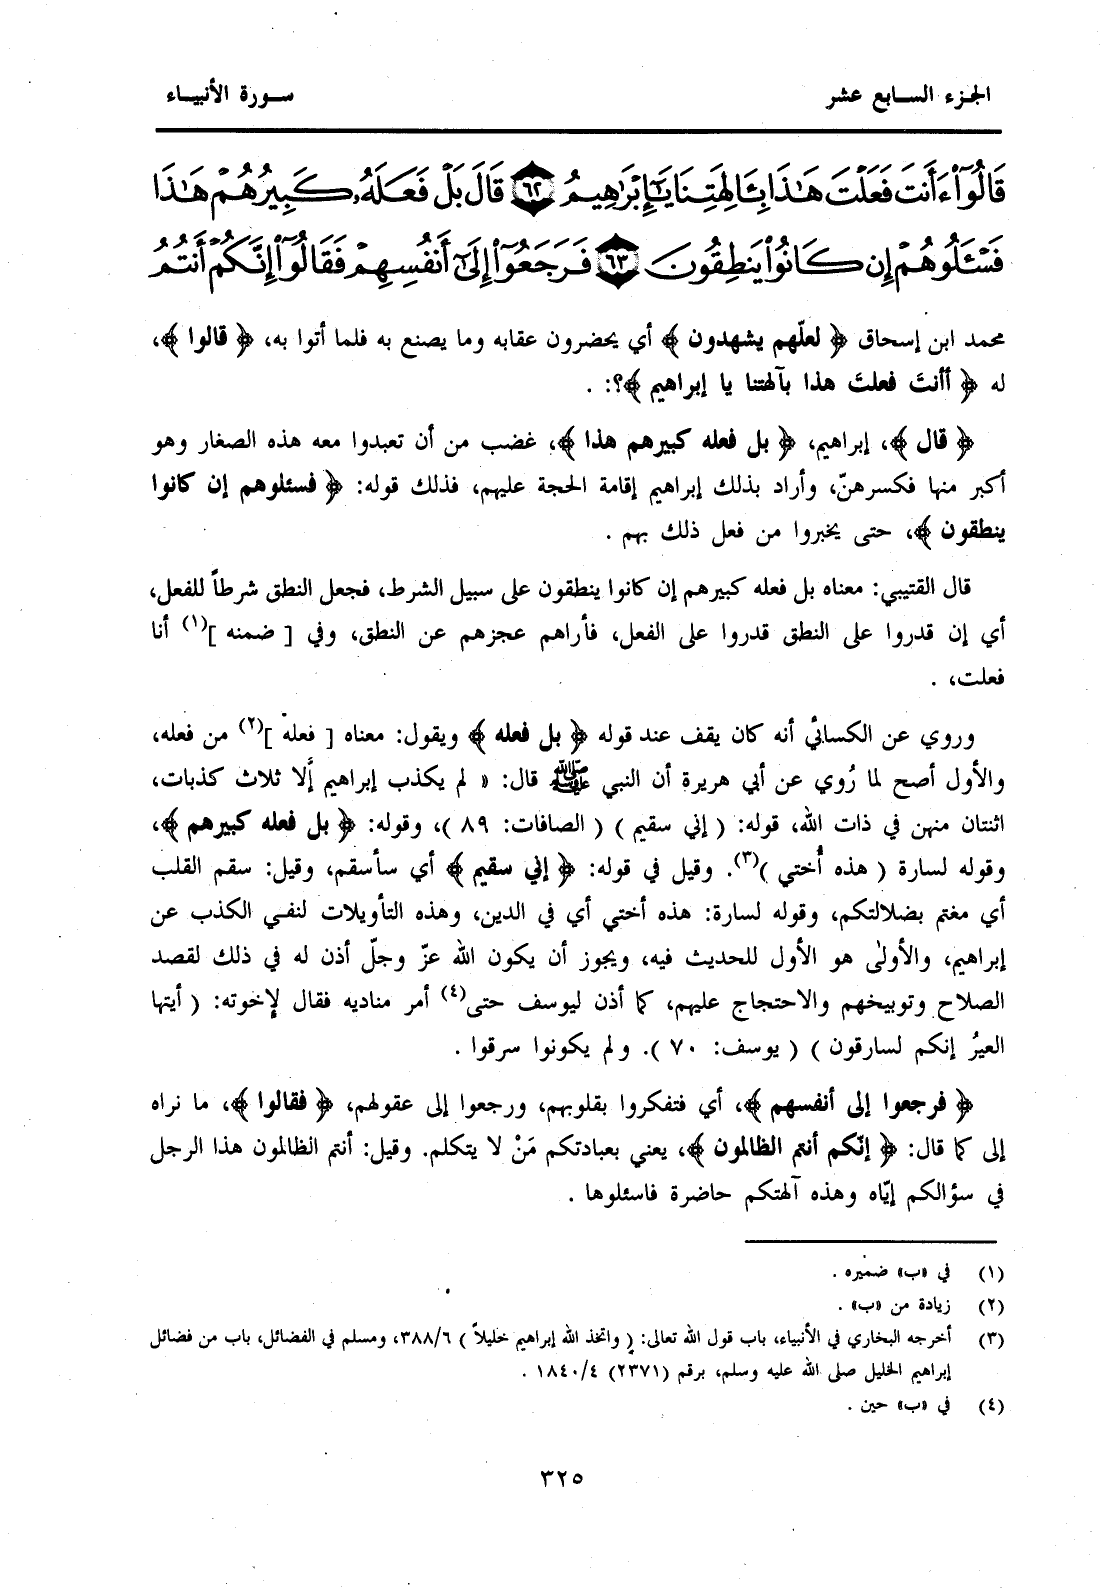 الجزء السابع عشر
سورة الأنبياء
قَالُوٓا۟ ءَأَنتَ فَعَلْتَ هَٰذَا بِـَٔالِهَتِنَا يَٰٓإِبْرَٰهِيمُ ۝٦٢ قَالَ بَلْ فَعَلَهُۥ كَبِيرُهُمْ هَٰذَا
فَسْـَٔلُوهُمْ إِن كَانُوا۟ يَنطِقُونَ ۝٦٣ فَرَجَعُوٓا۟ إِلَىٰٓ أَنفُسِهِمْ فَقَالُوٓا۟ إِنَّكُمْ أَنتُمُ
محمد ابن إسحاق ﴿ لعلّهم يشهدون ﴾ أي يحضرون عقابه وما يصنع به فلما أتوا به، ﴿ قالوا ﴾،
له ﴿ أأنتَ فعلتَ هذا بآلهتنا يا إبراهيم ﴾؟: .
﴿ قال ﴾، إبراهيم، ﴿ بل فعله كبيرهم هذا ﴾، غضب من أن تعبدوا معه هذه الصغار وهو
أكبر منها فكسرهنّ، وأراد بذلك إبراهيم إقامة الحجة عليهم، فذلك قوله: ﴿ فسئلوهم إن كانوا
ينطقون ﴾، حتى يخبروا من فعل ذلك بهم .
قال القتيبي: معناه بل فعله كبيرهم إن كانوا ينطقون على سبيل الشرط، فجعل النطق شرطاً للفعل،
أي إن قدروا على النطق قدروا على الفعل، فأراهم عجزهم عن النطق، وفي [ ضمنه ](١) أنا
فعلت، .
وروي عن الكسائي أنه كان يقف عند قوله ﴿ بل فعله ﴾ ويقول: معناه [ فعله ](٢) من فعله،
والأول أصح لما رُوي عن أبي هريرة أن النبي ﷺ قال: « لم يكذب إبراهيم إَّلا ثلاث كذبات،
اثنتان منهن في ذات الله، قوله: ( إني سقيم ) ( الصافات: ٨٩ )، وقوله: ﴿ بل فعله كبيرهم ﴾،
وقوله لسارة ( هذه أُختي )(٣). وقيل في قوله: ﴿ إني سقيم ﴾ أي سأسقم، وقيل: سقم القلب
أي مغتم بضلالتكم، وقوله لسارة: هذه أختي أي في الدين، وهذه التأويلات لنفي الكذب عن
إبراهيم، والأولىٰ هو الأول للحديث فيه، ويجوز أن يكون الله عزّ وجلّ أذن له في ذلك لقصد
الصلاح وتوبيخهم والاحتجاج عليهم، كما أذن ليوسف حتى(٤) أمر مناديه فقال لإخوته: ( أيتها
العيرُ إنكم لسارقون ) ( يوسف: ٧٠ ). ولم يكونوا سرقوا .
﴿ فرجعوا إلى أنفسهم ﴾، أي فتفكروا بقلوبهم، ورجعوا إلى عقولهم، ﴿ فقالوا ﴾، ما نراه
إلى كما قال: ﴿ إنّكم أنتم الظالمون ﴾، يعني بعبادتكم مَنْ لا يتكلم. وقيل: أنتم الظالمون هذا الرجل
في سؤالكم إيّاه وهذه آلهتكم حاضرة فاسئلوها .
(١) في «ب» ضميره .
(٢) زيادة من «ب» .
(٣) أخرجه البخاري في الأنبياء، باب قول الله تعالى: ( واتخذ الله إبراهيم خليلاً ) ٣٨٨/٦، ومسلم في الفضائل، باب من فضائل
إبراهيم الخليل صلى الله عليه وسلم، برقم (٢٣٧١) ١٨٤٠/٤ .
(٤) في «ب» حين .
٣٢٥